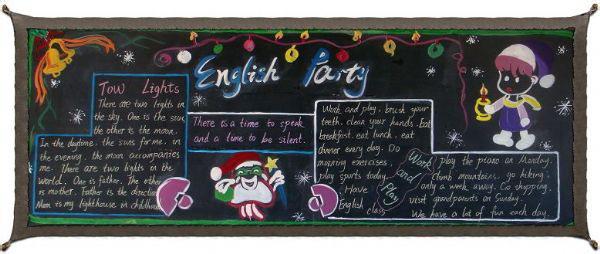 English Party
Tow Lights
There are two lights in
the sky. One is the sun,
the other is the moon.
In the daytime. the sun for me. in
the evening. the moon accompanies
me. There are two lights in the
world. One is father. The other
is mother. Father is the direction
Mom is my lighthouse in childhood
There is a time to speak
and a time to be silent.
Work and play. brush your
teeth. clean your hands. Eat
breakfast. eat lunch. eat
dinner every day. Do
morning exercises.
play sports today.
Have
English class
Work
and
Play
play the piano on Monday.
Climb mountains, go hiking.
only a week away. Go shopping.
visit grandparents on Sunday.
We have a lot of fun each day.